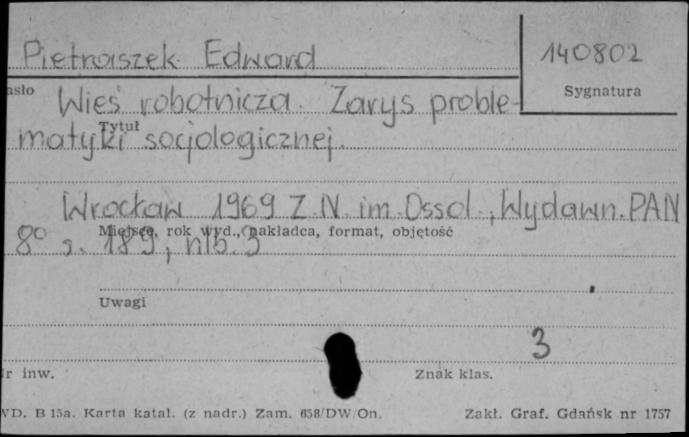 Pietraszek Edward
140802
asło
Sygnatura
Wieś robotnicza. Zarys proble-
Tytuł
matyki socjologicznej.
Wrocław 1969 Z.N. im. Ossol., Wydawn. PAN
Miejsce, rok wyd., nakładca, format, objętość
8° s. 189, nlb. 3
Uwagi
3
r inw.
Znak klas.
VD. B 15a. Karta katal. (z nadr.) Zam. 658/DW/On.
Zakł. Graf. Gdańsk nr 1757